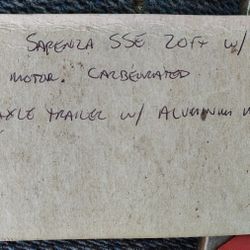 SARENZA SSE 20FT W/
MOTOR. CARBEURATED
AXLE TRAILER W/ ALUMINUM